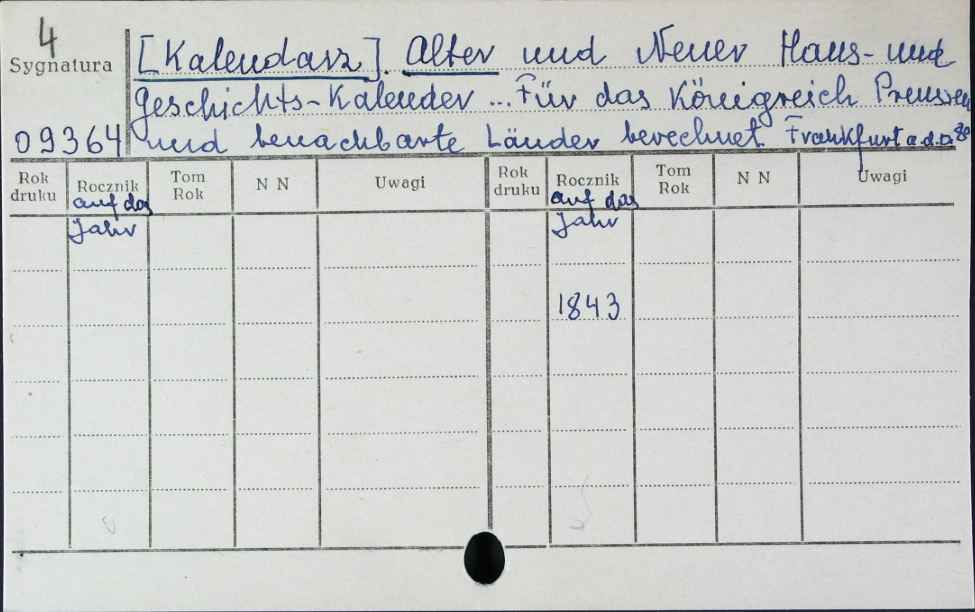 4
Sygnatura
[Kalendarz]. Alter und Neuer Haus- und
Geschichts-Kalender ... Für das Königreich Preussen
09364 und benachbarte Länder berechnet Frankfurt a.d.O.
Rok druku Rocznik Tom Rok N N Uwagi Rok druku Rocznik Tom Rok N N Uwagi
auf das Jahr auf das Jahr
1843